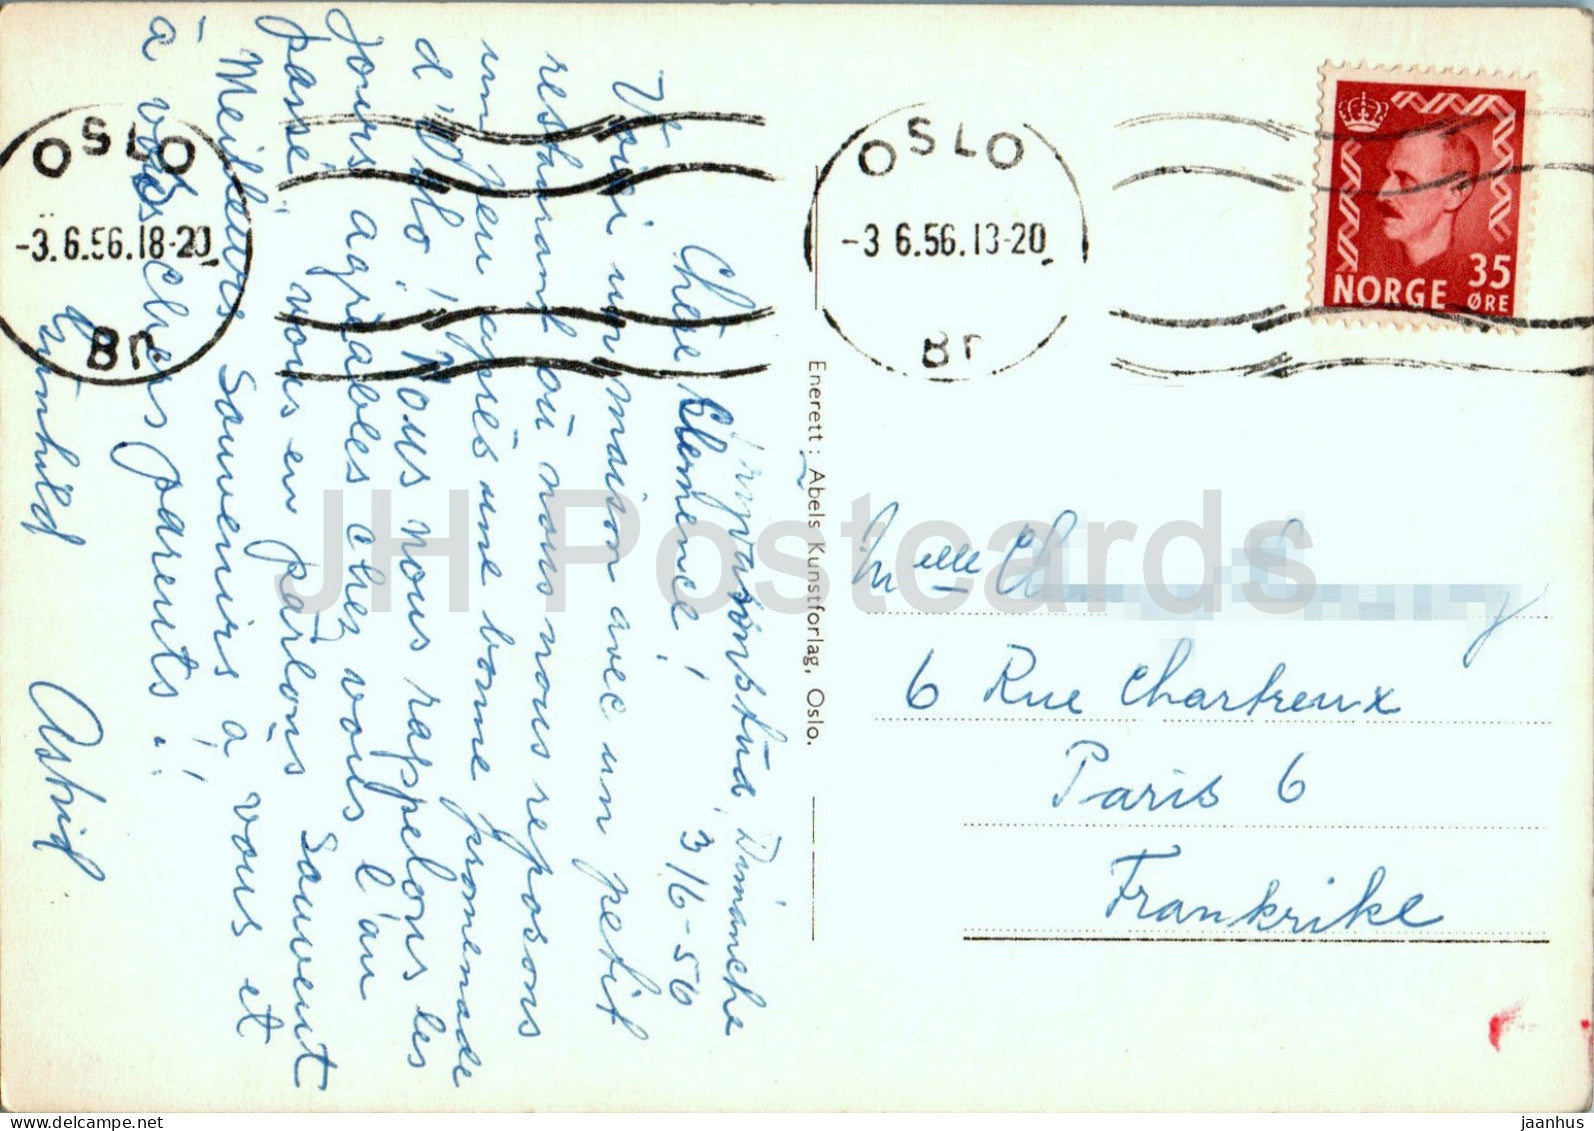 OSLO
-3.6.56.18-20
Br
OSLO
-3 6.56.13-20
Br
NORGE 35
ØRE
Dimanche
3/6-56
Chère Clemence!
Voici un maison avec un petit
restaurant où nous nous reposons
un peu après une bonne promenade
d'Oslo! Nous nous rappelons les
jours agréables chez vous l'an
passé, nous en parlons sauvent
Meilleurs sauvenirs à vous et
à vos chers parents!
Gunhild Astrid
Enerett: Abels Kunstforlag, Oslo.
Melle
6 Rue Chartreux
Paris 6
Frankrike
JH Postcards
delcampe.net
jaanhus